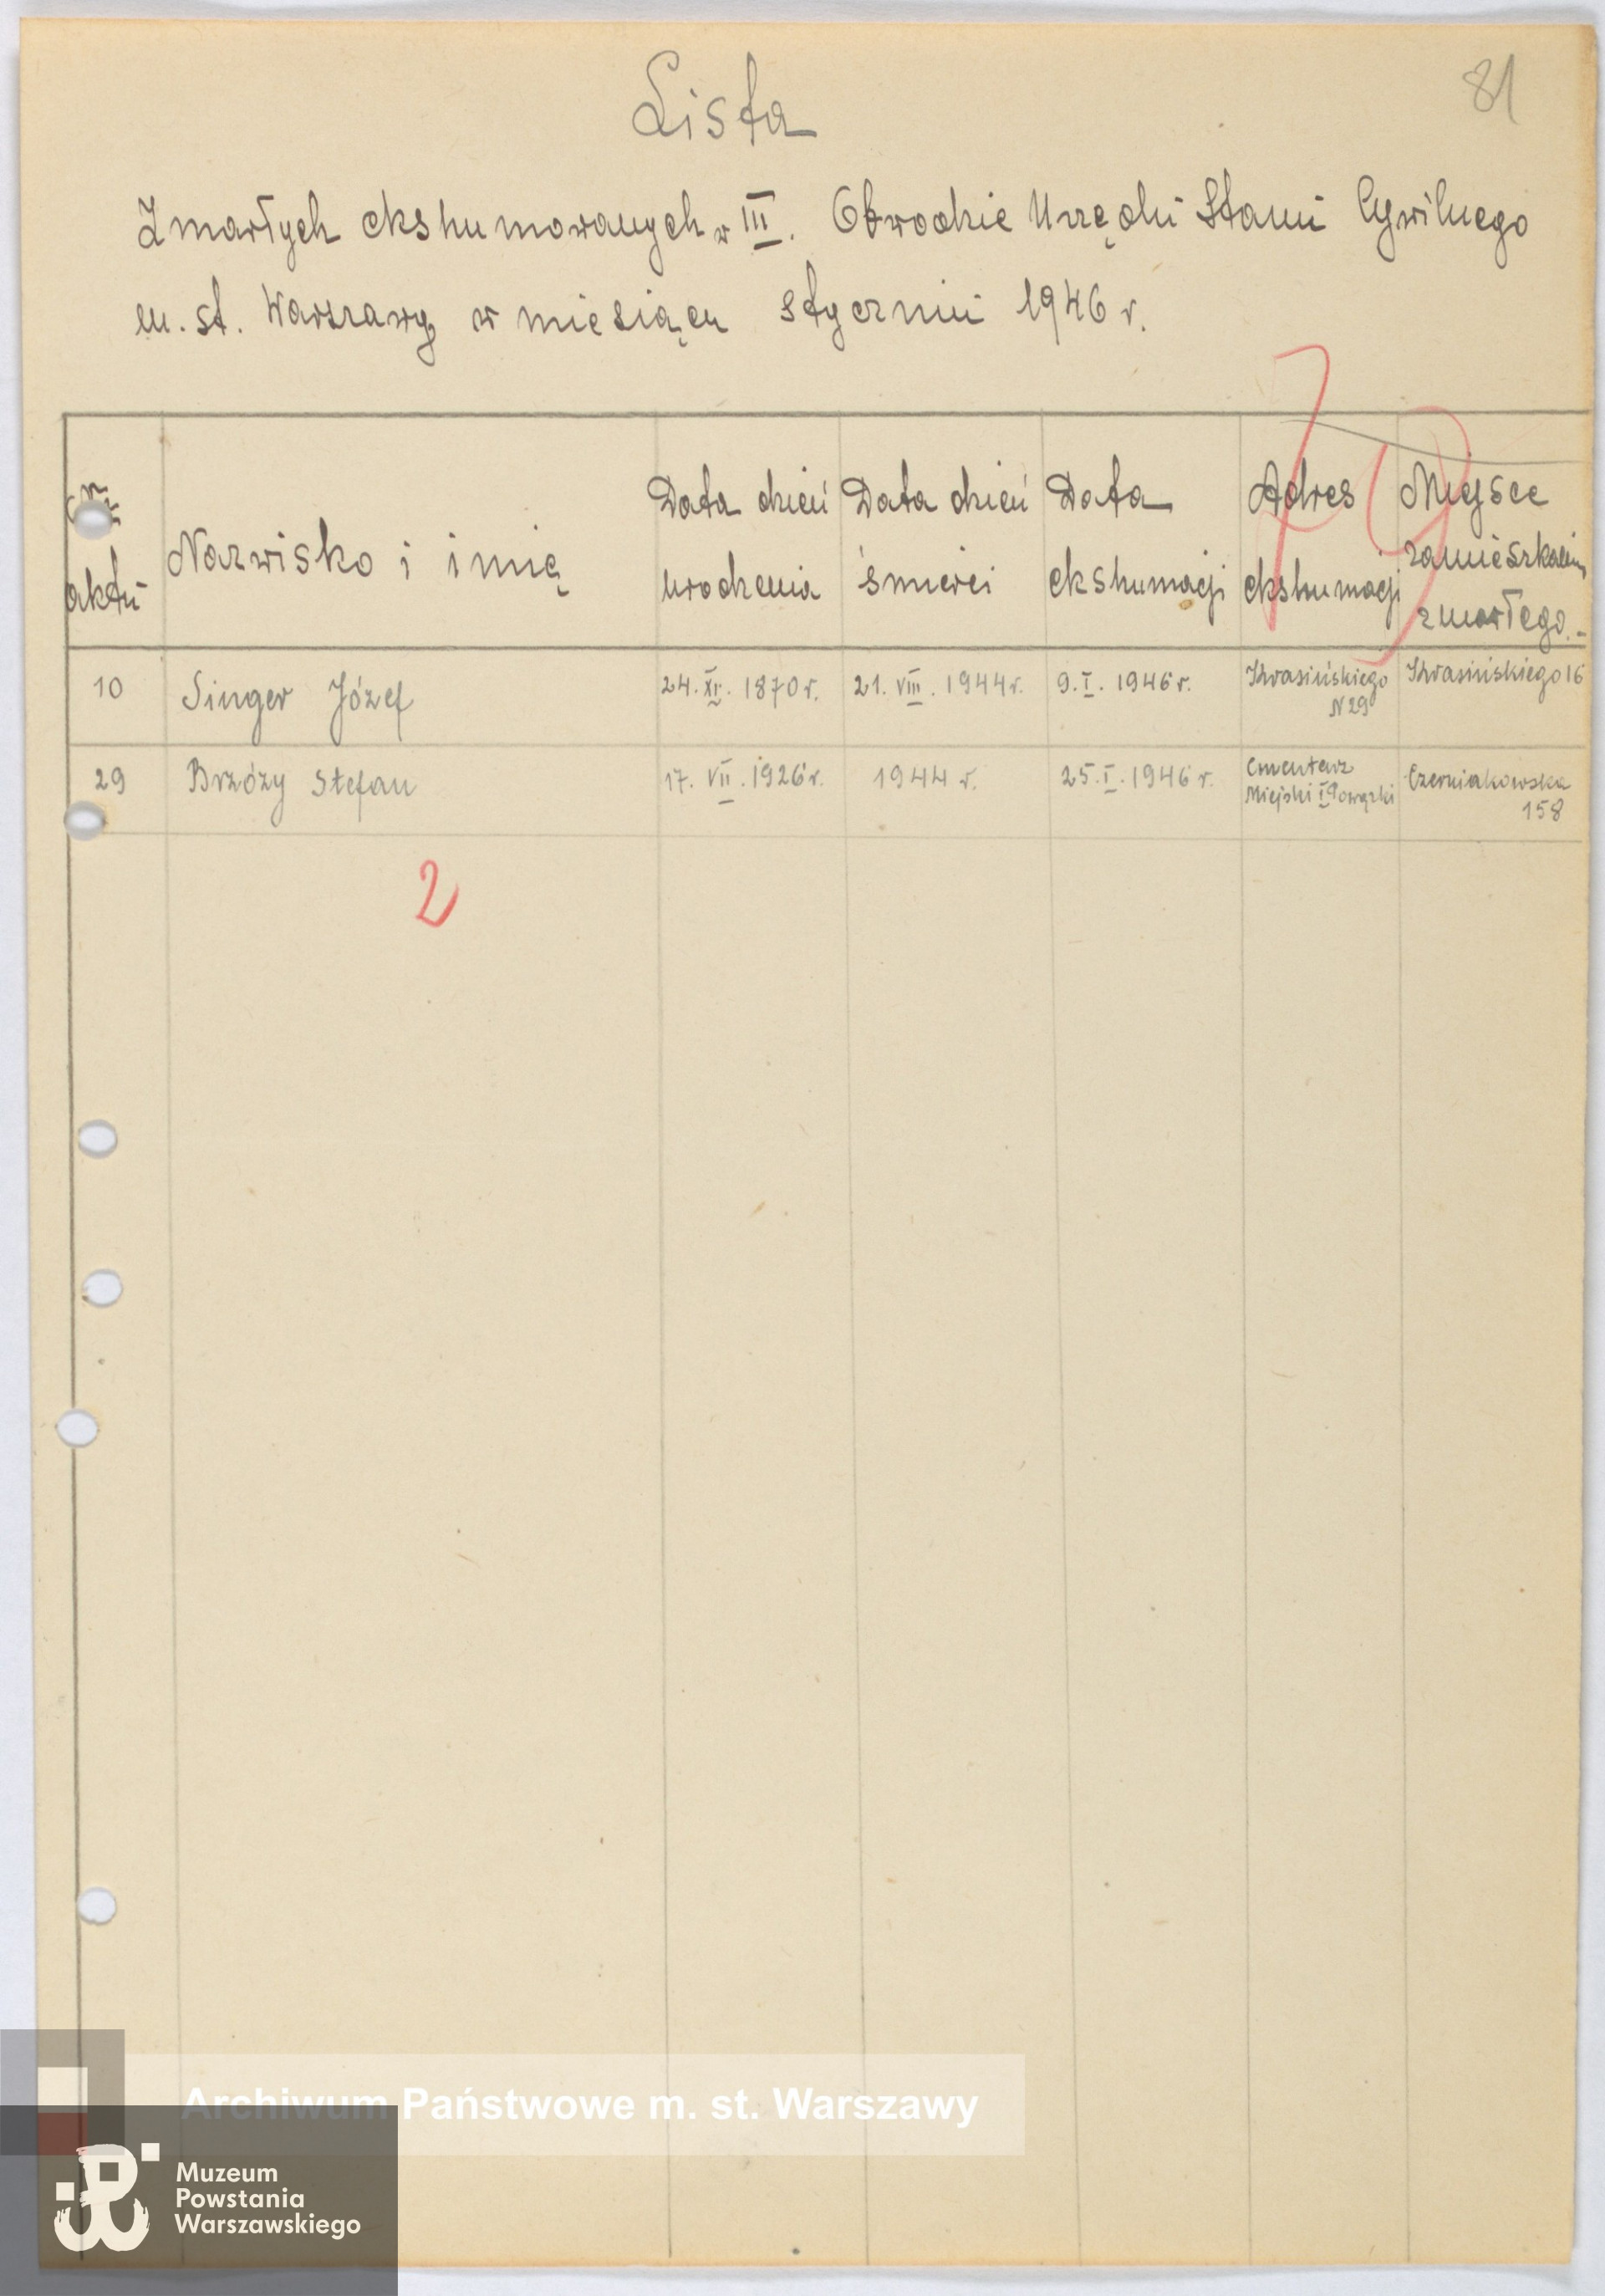 81
Lista
Zmarłych ekshumowanych w III. Obwodzie Urzędu Stanu Cywilnego
m. st. Warszawy w miesiącu styczniu 1946 r.
Nr aktu | Nazwisko i imię | Data dzień urodzenia | Data dzień śmierci | Data ekshumacji | Adres ekshumacji | Miejsce zamieszkania zmarłego.-
10 | Singer Józef | 24. XII. 1870 r. | 21. VIII. 1944 r. | 9. I. 1946 r. | Krasińskiego N 29 | Krasińskiego 16
29 | Brzózy Stefan | 17. VII. 1926 r. | 1944 r. | 25. I. 1946 r. | Cmentarz Miejski Powązki | Czerniakowska 158
2
Archiwum Państwowe m. st. Warszawy
Muzeum
Powstania
Warszawskiego